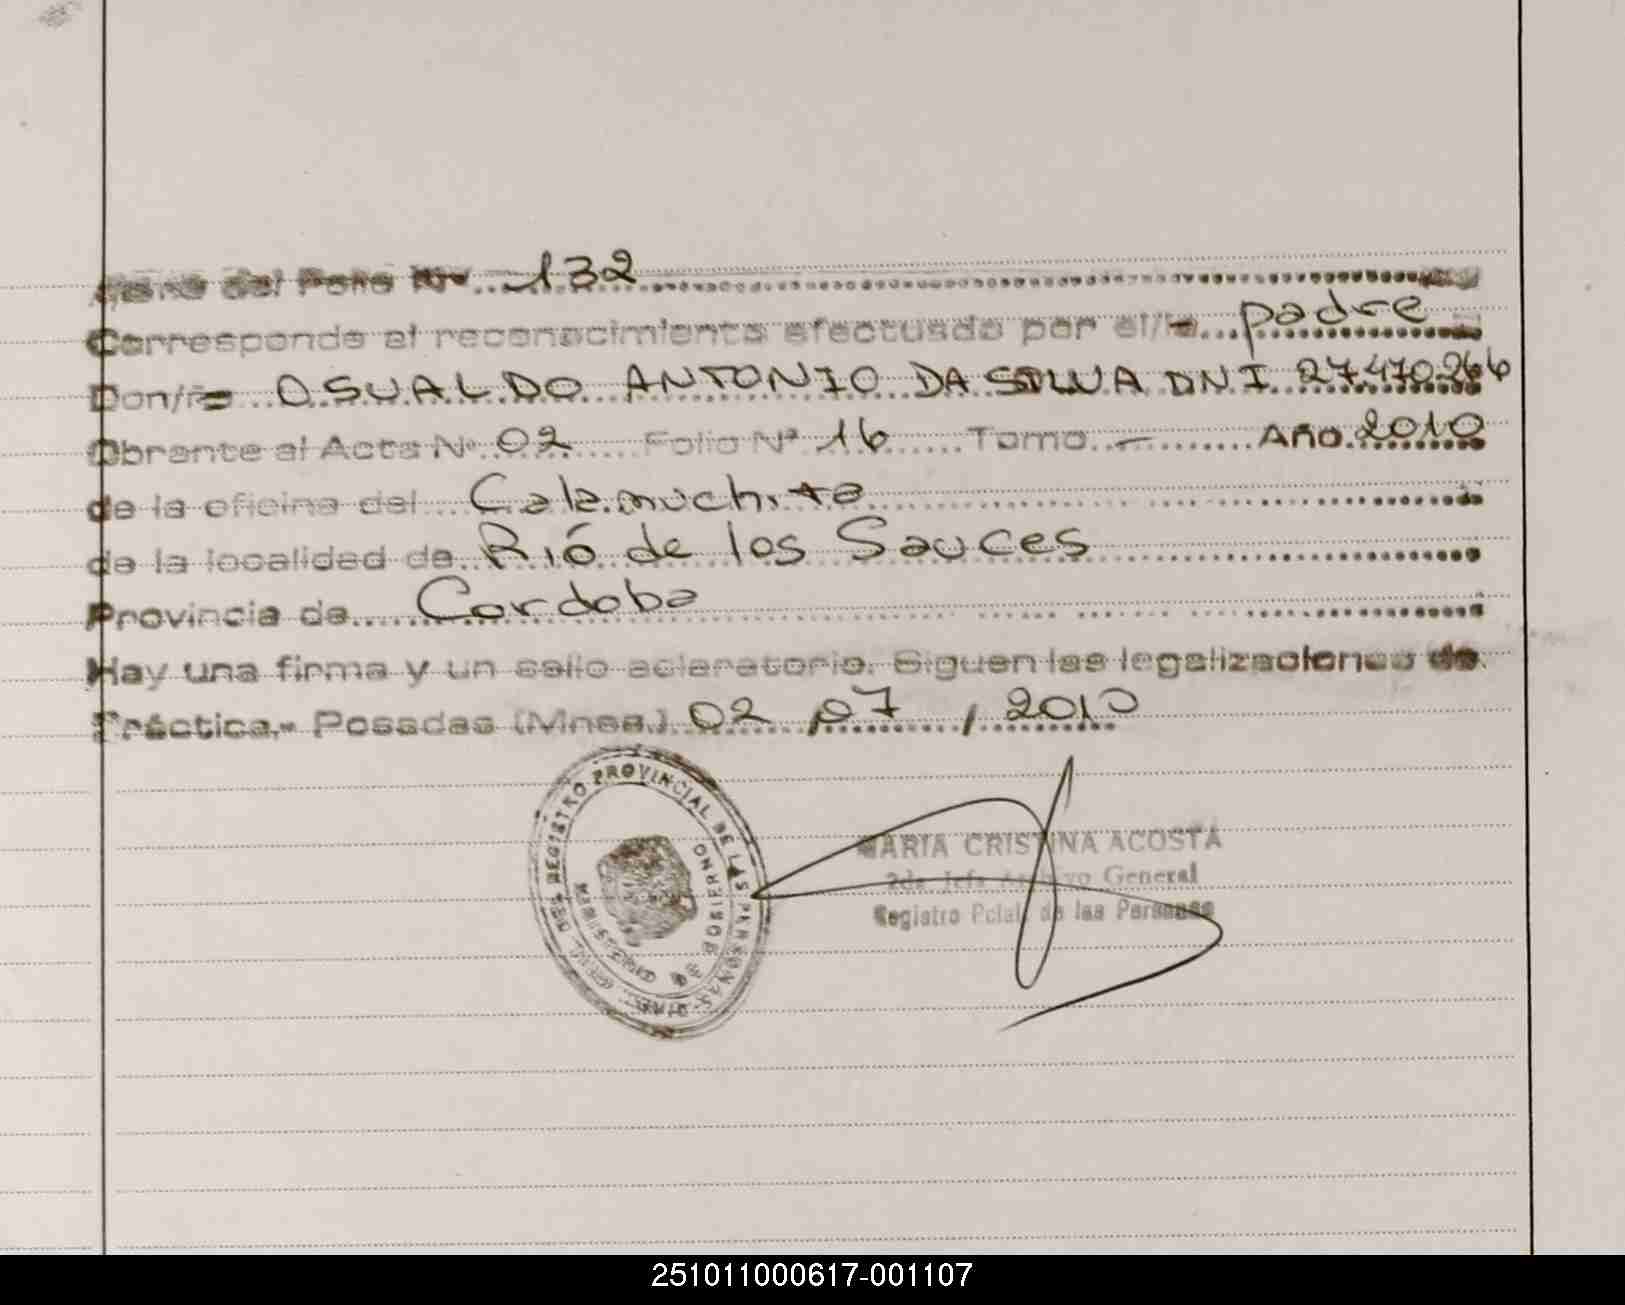 del Folio Nº 132
Corresponde al reconocimiento efectuado por el/la padre
Don/ña OSVALDO ANTONIO DA SILVA DNI 27470266
Obrante al Acta Nº 02 Folio Nº 16 Tomo — Año 2010
de la oficina del Calamuchita
de la localidad de Rió de los Sauces
Provincia de Cordoba
Hay una firma y un sello aclaratorio. Siguen las legalizaciones de
Práctica.- Posadas (Mnes.) 02 / 07 / 2010
DEL REGISTRO PROVINCIAL DE LAS PERSONAS
GOBIERNO
MARIA CRISTINA ACOSTA
2da Jefa Archivo General
Registro Pcial. de las Personas
251011000617-001107